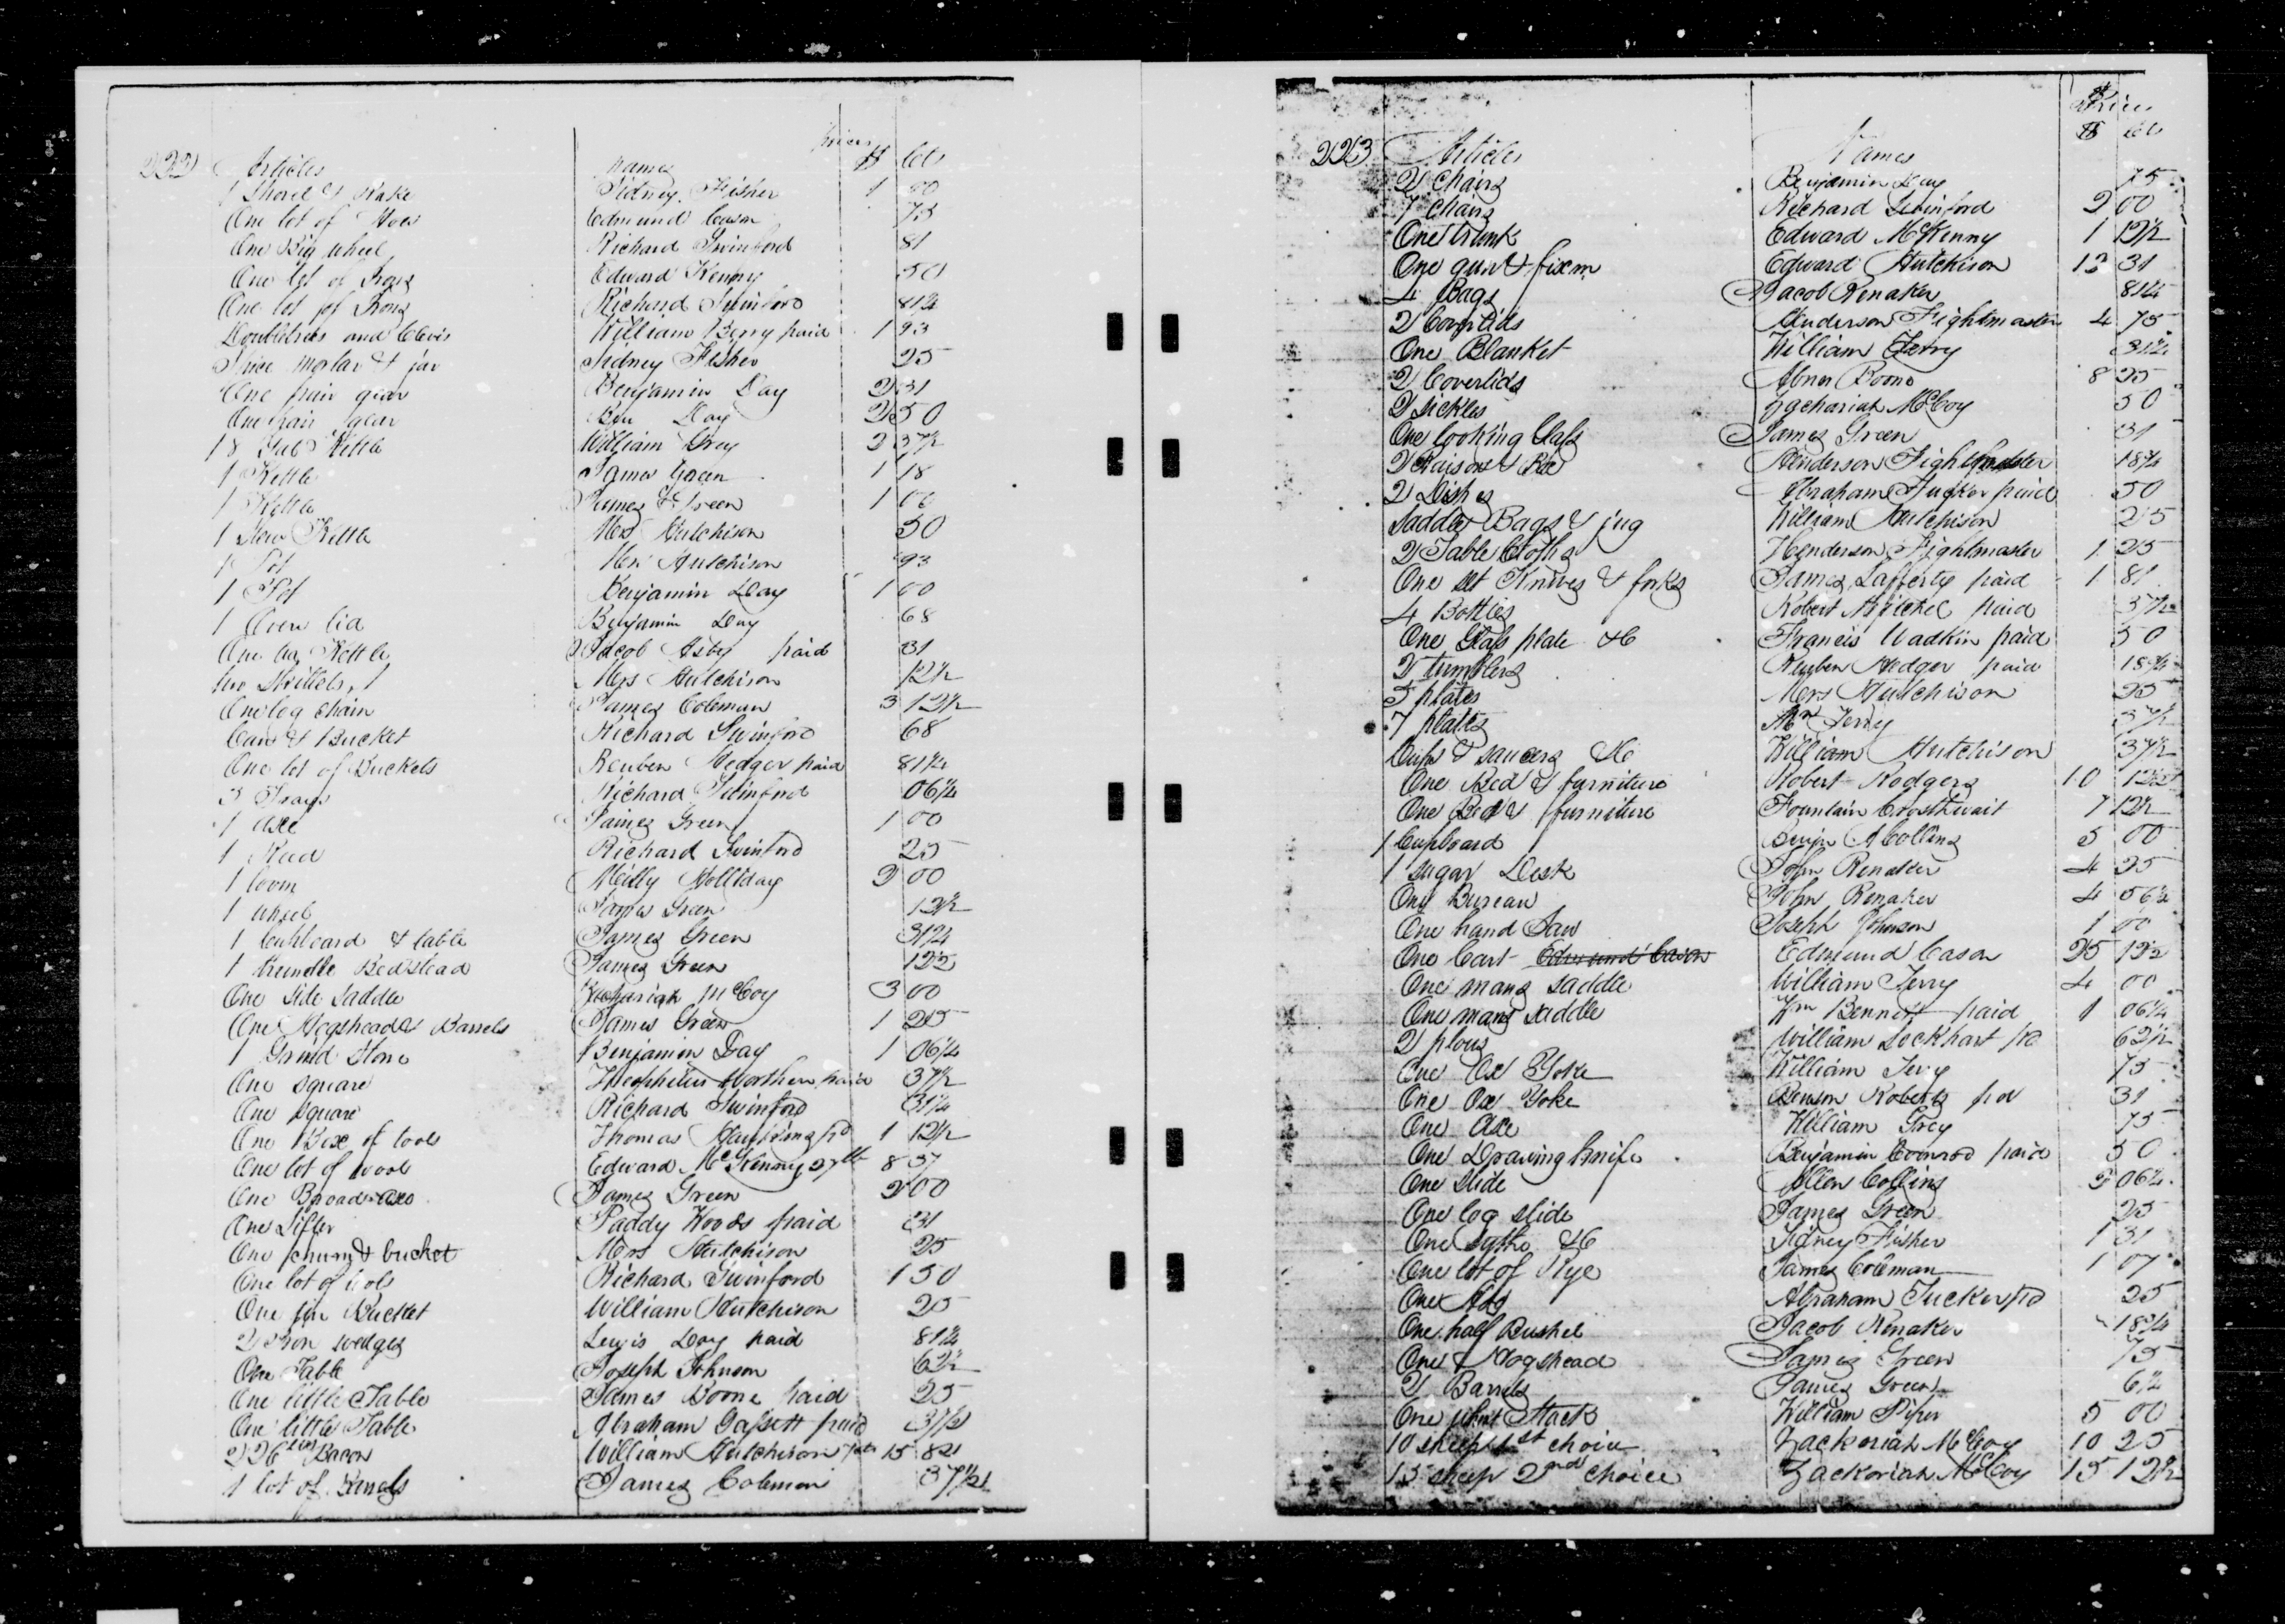 222 Articles names prices $ cts
1 Shovel & Rake Sidney Fisher 1 00
One lot of Hoes Edmund Cason 75
One Big wheel Richard Swinford 81
One lot of Irons Edward Kenny 50
One lot of Irons Richard Swinford 81¼
Doubletrees and Clevis William Berry paid 1 93
Spice mortar & jar Sidney Fisher 25
One pair gear Benjamin Day 2 31
One pair gear Ben Day 2 50
18 Gal Kettle William Grey 2 37½
1 Kettle James Green 1 18
1 Kettle James Green 1 06
1 Stew Kettle Mrs Hutchison 50
1 Pot Mrs Hutchison 93
1 Pot Benjamin Day 1 00
1 Oven lid Benjamin Day 68
One Kettle Jacob Asby paid 31
two Skillets Mrs Hutchison 12½
One log chain James Coleman 3 12½
Can & Bucket Richard Swinford 68
One lot of Buckets Reuben Hedger paid 81¼
3 Trays Richard Swinford 06¼
1 axe James Green 1 00
1 Reed Richard Swinford 25
1 loom Milly Holliday 2 00
1 wheel James Green 12½
1 Cubboard & table James Green 31¼
1 trundle Bedstead James Green 12½
One Side Saddle Zachariah McCoy 3 00
One Hogshead & Barrels James Green 1 25
1 Grind Stone Benjamin Day 1 06¼
One square Theophilus Northern paid 37½
One square Richard Swinford 31¼
One Box of tools Thomas Hawkins pd 1 12½
One lot of wool Edward McKenny 27 lb 8 37
One Broad axe James Green 2 00
One Sifter Paddy Woods paid 31
One churn & bucket Mrs Hutchison 25
One lot of tools Richard Swinford 1 50
One tin Bucket William Hutchison 25
2 Iron wedges Lewis Day paid 81¼
One Table Joseph Johnson 62½
One little Table James Boone paid 25
One little Table Abraham Gassett paid 37½
226 lbs Bacon William Hutchison 7 cts 15 82
1 lot of James Coleman 37½
223 Articles Names Prices $ cts
2 Chairs Benjamin Day 75
7 Chairs Richard Swinford 2 00
One trunk Edward McKenny 1 12½
One gun & fixm Edward Hutchison 12 31
4 Bags Jacob Renaker 81¼
2 Coverlids Henderson Fightmaster 4 75
One Blanket William Terry 31¼
2 Coverlids Abner Boone 8 25
2 Sickles Zachariah McCoy 50
One looking Glass James Green 31
2 Raisons & Box Henderson Fightmaster 18¾
2 Dishes Abraham Tucker paid 50
Saddle Bags & jug William Hutchison 25
2 Table Cloths Henderson Fightmaster 1 25
One set Knives & forks James Lafferty paid 1 81
4 Bottles Robert Mitchel paid 37½
One Glass plate &C Francis Wadkin paid 50
2 tumblers Reuben Hedger paid 18¾
5 plates Mrs Hutchison 25
7 plates Mrs Terry 37½
Cups & saucers &C William Hutchison 37½
One Bed & furniture Robert Rodgers 10 12½
One Bed & furniture Fountain Crosthwait 7 12½
1 Cupboard Benjn A Collins 5 00
1 Sugar Desk John Renaker 4 25
One Bureau John Renaker 4 56¼
One hand Saw Joseph Johnson 1 00
One Cart Edmund Cason Edmund Cason 25 12½
One mans saddle William Terry 4 00
One mans saddle Wm Bennett paid 1 06¼
2 plows William Lockhart pd 62½
One Ox Yoke William Terry 75
One Ox Yoke Benson Roberts pd 31
One Axe William Grey 75
One Drawing Knife Benjamin Conrod paid 50
One Slide Allen Collins 2 06¼
One log slide James Green 25
One Sythe &C Sidney Fisher 1 31
One lot of Rye James Coleman 1 07
One Adz Abraham Tucker pd 25
One half Bushel Jacob Renaker 18¾
One Hogshead James Green 75
2 Barrels James Green 6¼
One wheat Stack William Piper 5 00
10 sheep 1st choice Zackariah McCoy 10 25
15 sheep 2nd choice Zackariah McCoy 15 12½